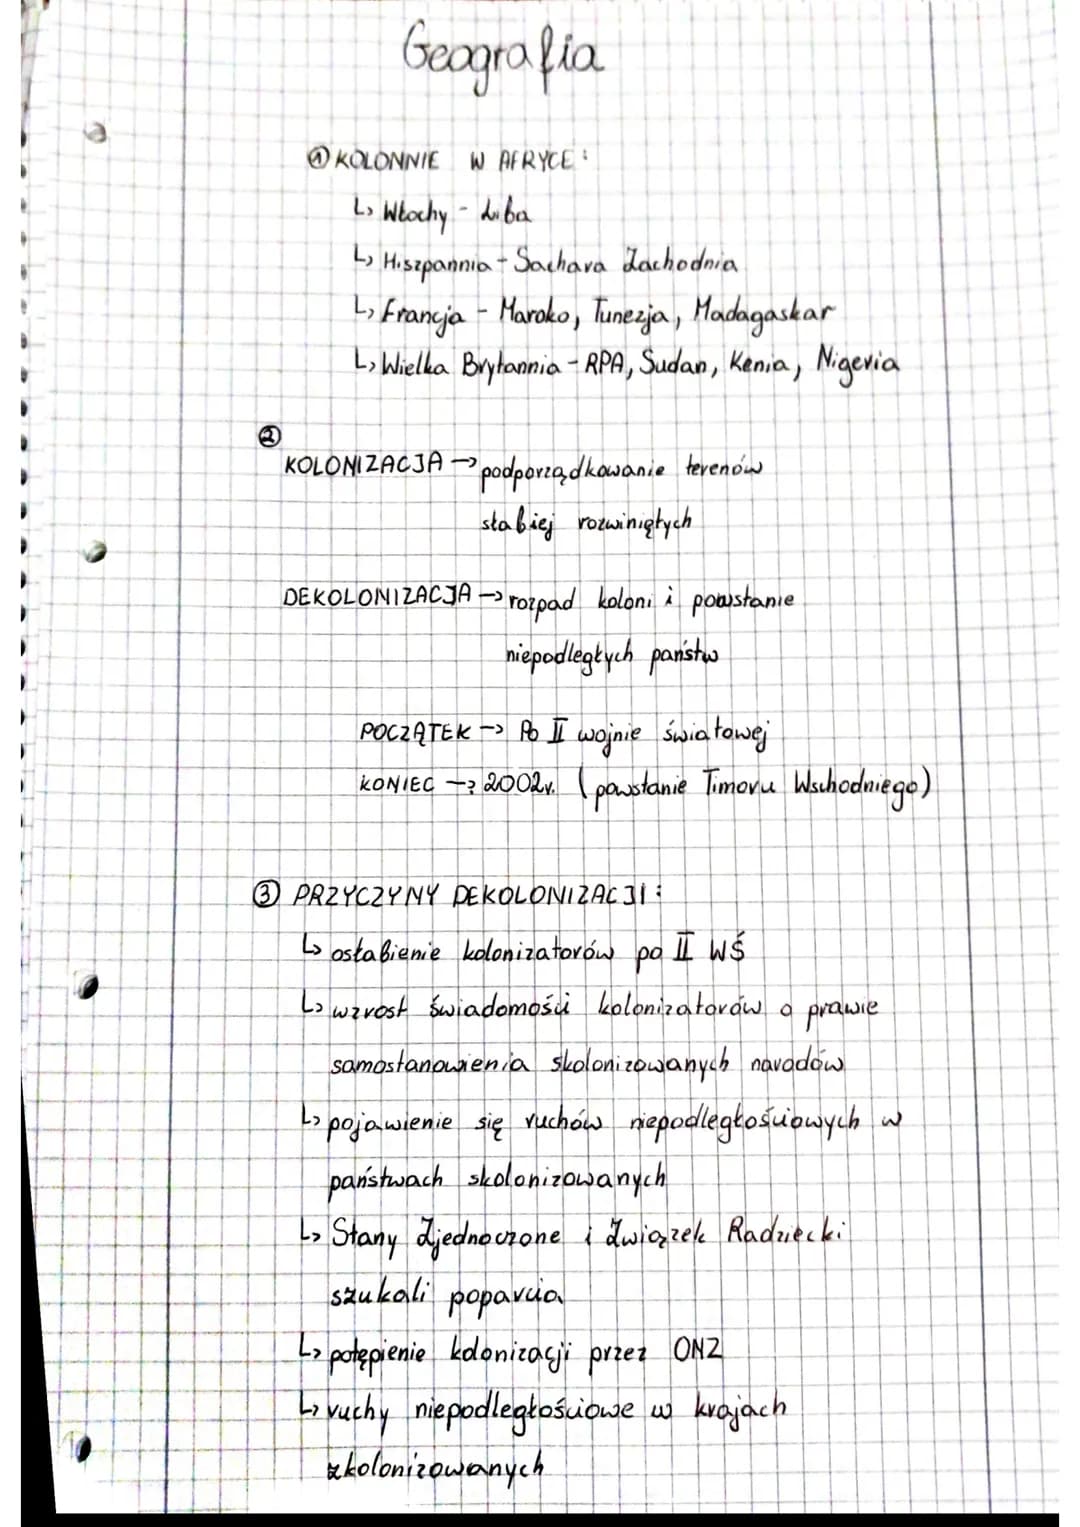 Geografia
① KOLONNIE W AFRYCE:
↳ Włochy - Liba
↳ Hiszpannia - Sachara Zachodnia
↳ Francja - Maroko, Tunezja, Madagaskar
↳ Wielka Brytannia - RPA, Sudan, Kenia, Nigeria
②
KOLONIZACJA → podporządkowanie terenów
słabiej rozwiniętych
DEKOLONIZACJA → rozpad koloni i powstanie
niepodległych państw
POCZĄTEK → Po II wojnie światowej
KONIEC → 2002r. (powstanie Timoru Wschodniego)
③ PRZYCZYNY DEKOLONIZACJI:
↳ osłabienie kolonizatorów po II WŚ
↳ wzrost świadomości kolonizatorów o prawie
samostanowienia skolonizowanych narodów
↳ pojawienie się ruchów niepodległościowych w
państwach skolonizowanych
↳ Stany Zjednoczone i Związek Radziecki
szukali poparcia
↳ potępienie kolonizacji przez ONZ
↳ ruchy niepodległościowe w krajach
zkolonizowanych